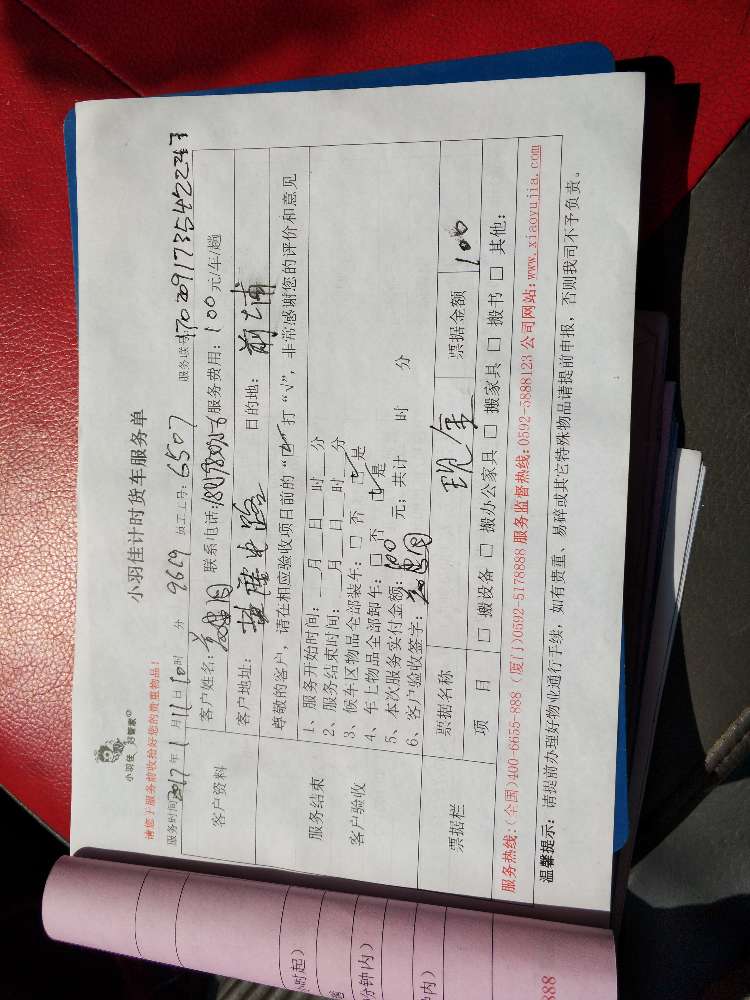 小羽佳 好管家
小羽佳计时货车服务单
请您于服务前收拾好您的贵重物品!
服务时间 2017 年 1 月 11 日 10 时 分 9609 员工工号: 6507 服务联 170209173542224 3
客户资料
客户姓名: 联系电话: 服务费用: 100 元/车/趟
客户地址: 目的地: 前埔
尊敬的客户, 请在相应验收项目前的“□”打“√”, 非常感谢您的评价和意见
服务结束
客户验收
1、服务开始时间: 月 日 时 分
2、服务结束时间: 月 日 时 分
3、候车区物品全部装车: □ 否 ☑ 是
4、车上物品全部卸车: □ 否 ☑ 是
5、本次服务实付金额: 100 元; 共计 时 分
6、客户验收签字:
票据栏
票据名称 现金 票据金额 100
项 目 □ 搬设备 □ 搬办公家具 □ 搬家具 □ 搬书 □ 其他:
服务热线: (全国)400-6655-888 (厦门)0592-5178888 服务监督热线: 0592-5888123 公司网站: www.xiaoyujia.com
温馨提示: 请提前办理好物业通行手续, 如有贵重、易碎或其它特殊物品请提前申报, 否则我司不予负责。
时起)
分钟内)
内)
888